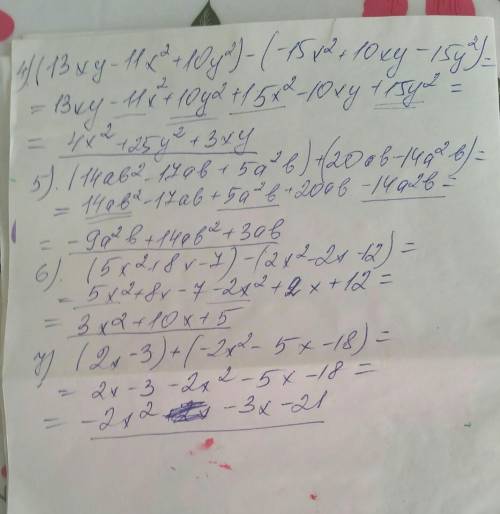 4) (13xy - 11x² + 10y²) - (-15x² + 10xy - 15y²) =
= 13xy - 11x² + 10y² + 15x² - 10xy + 15y² =
= 4x² + 25y² + 3xy
5). (14ab² - 17ab + 5a²b) + (20ab - 14a²b) =
= 14ab² - 17ab + 5a²b + 20ab - 14a2b =
= -9a²b + 14ab² + 3ab
6). (5x² + 8x - 7) - (2x² - 2x - 12) =
= 5x² + 8x - 7 - 2x² + 2x + 12 =
= 3x² + 10x + 5
7) (2x - 3) + (-2x² - 5x - 18) =
= 2x - 3 - 2x² - 5x - 18 =
= -2x² - 3x - 21